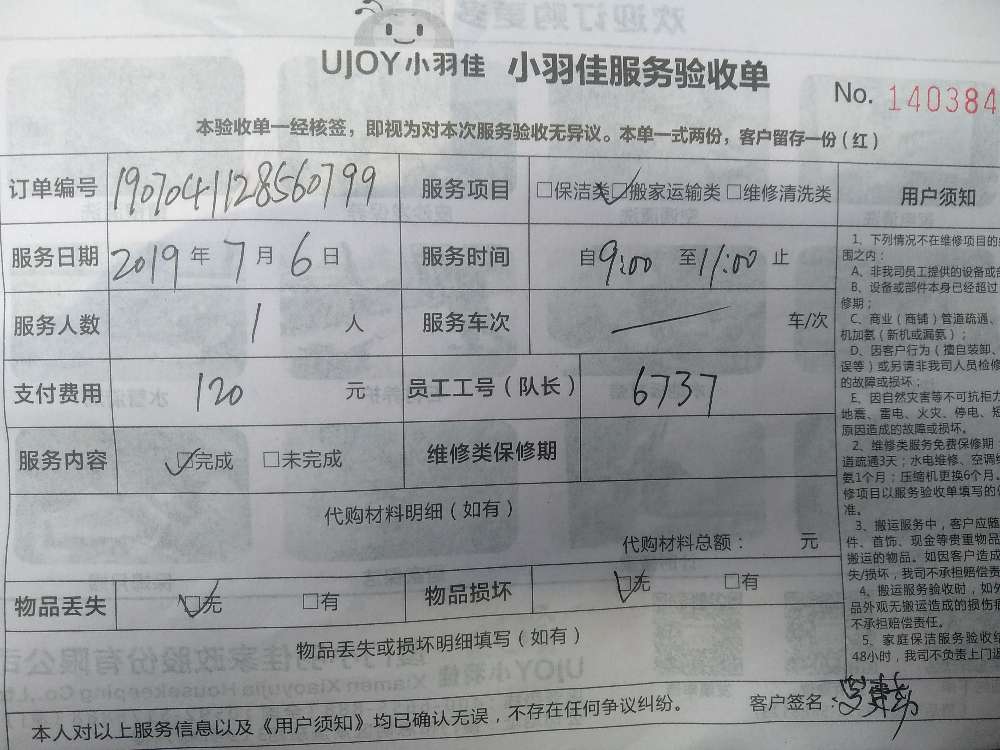 UJOY小羽佳 小羽佳服务验收单
No. 140384
本验收单一经核签，即视为对本次服务验收无异议。本单一式两份，客户留存一份（红）
订单编号 1907041128560799 服务项目 □保洁类 □搬家运输类 □维修清洗类 用户须知
服务日期 2019 年 7 月 6 日 服务时间 自 9:00 至 11:00 止
服务人数 1 人 服务车次 车/次
支付费用 120 元 员工工号（队长） 6737
服务内容 □完成 □未完成 维修类保修期
代购材料明细（如有）
代购材料总额： 元
物品丢失 □无 □有 物品损坏 □无 □有
物品丢失或损坏明细填写（如有）
本人对以上服务信息以及《用户须知》均已确认无误，不存在任何争议纠纷。 客户签名：
1、下列情况不在维修项目的
围之内：
A、非我司员工提供的设备或
B、设备或部件本身已经超过
修期；
C、商业（商铺）管道疏通、
机加氨（新机或漏氨）；
D、因客户行为（擅自装卸、
误等）或另请非我司人员检修
的故障或损坏；
E、因自然灾害等不可抗拒力
地震、雷电、火灾、停电、短
原因造成的故障或损坏。
2、维修类服务免费保修期：
道疏通3天；水电维修、空调
氨1个月；压缩机更换6个月。
修项目以服务验收单填写的
准。
3、搬运服务中，客户应随
件、首饰、现金等贵重物品
搬运的物品。如因客户造成
失/损坏，我司不承担赔偿责
4、搬运服务验收时，如外
品外观无搬运造成的损伤
不承担赔偿责任。
5、家庭保洁服务验收
48小时，我司不负责上门返